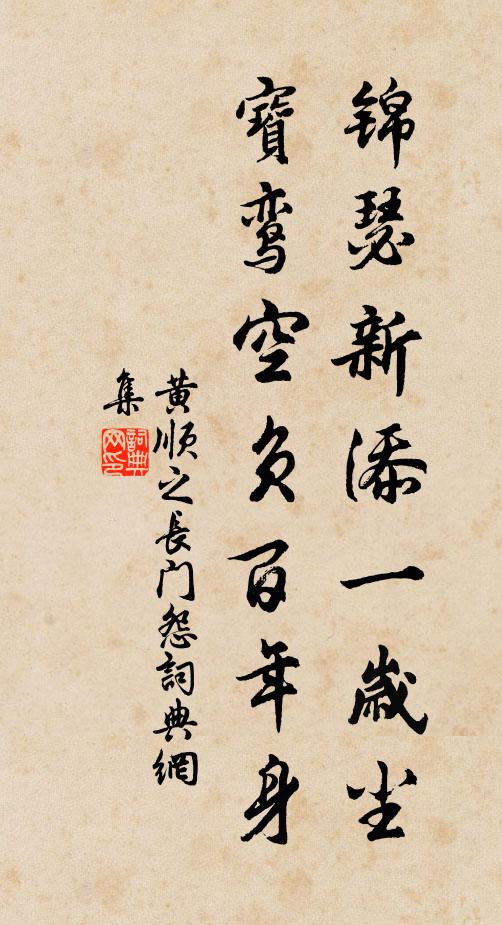 锦瑟新添一歲尘
寶鸾空负百年身
黄顺之长门怨詞典網
集
詞典网印